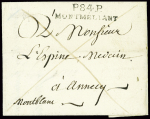 P84P
MONTMELIANT
A Monsieur
L'Espine Medecin
à Annecy
Montblanc